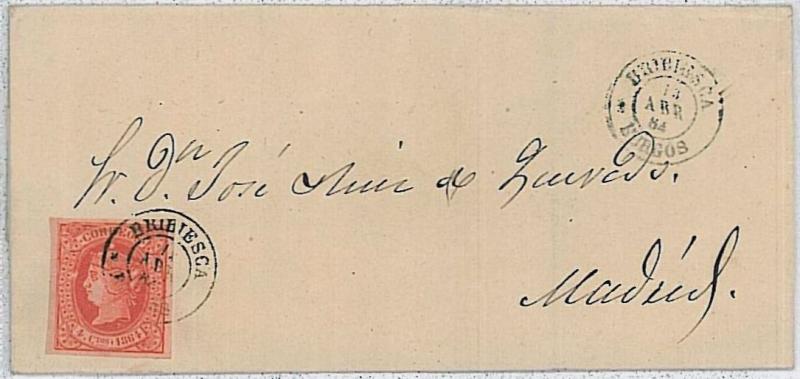 BRIBIESCA
13
ABR
64
BURGOS
Sr. Dn José Ruiz de Quevedo.
Madrid.
BRIBIESCA
ABR
CORREOS
4 Ctos 1864